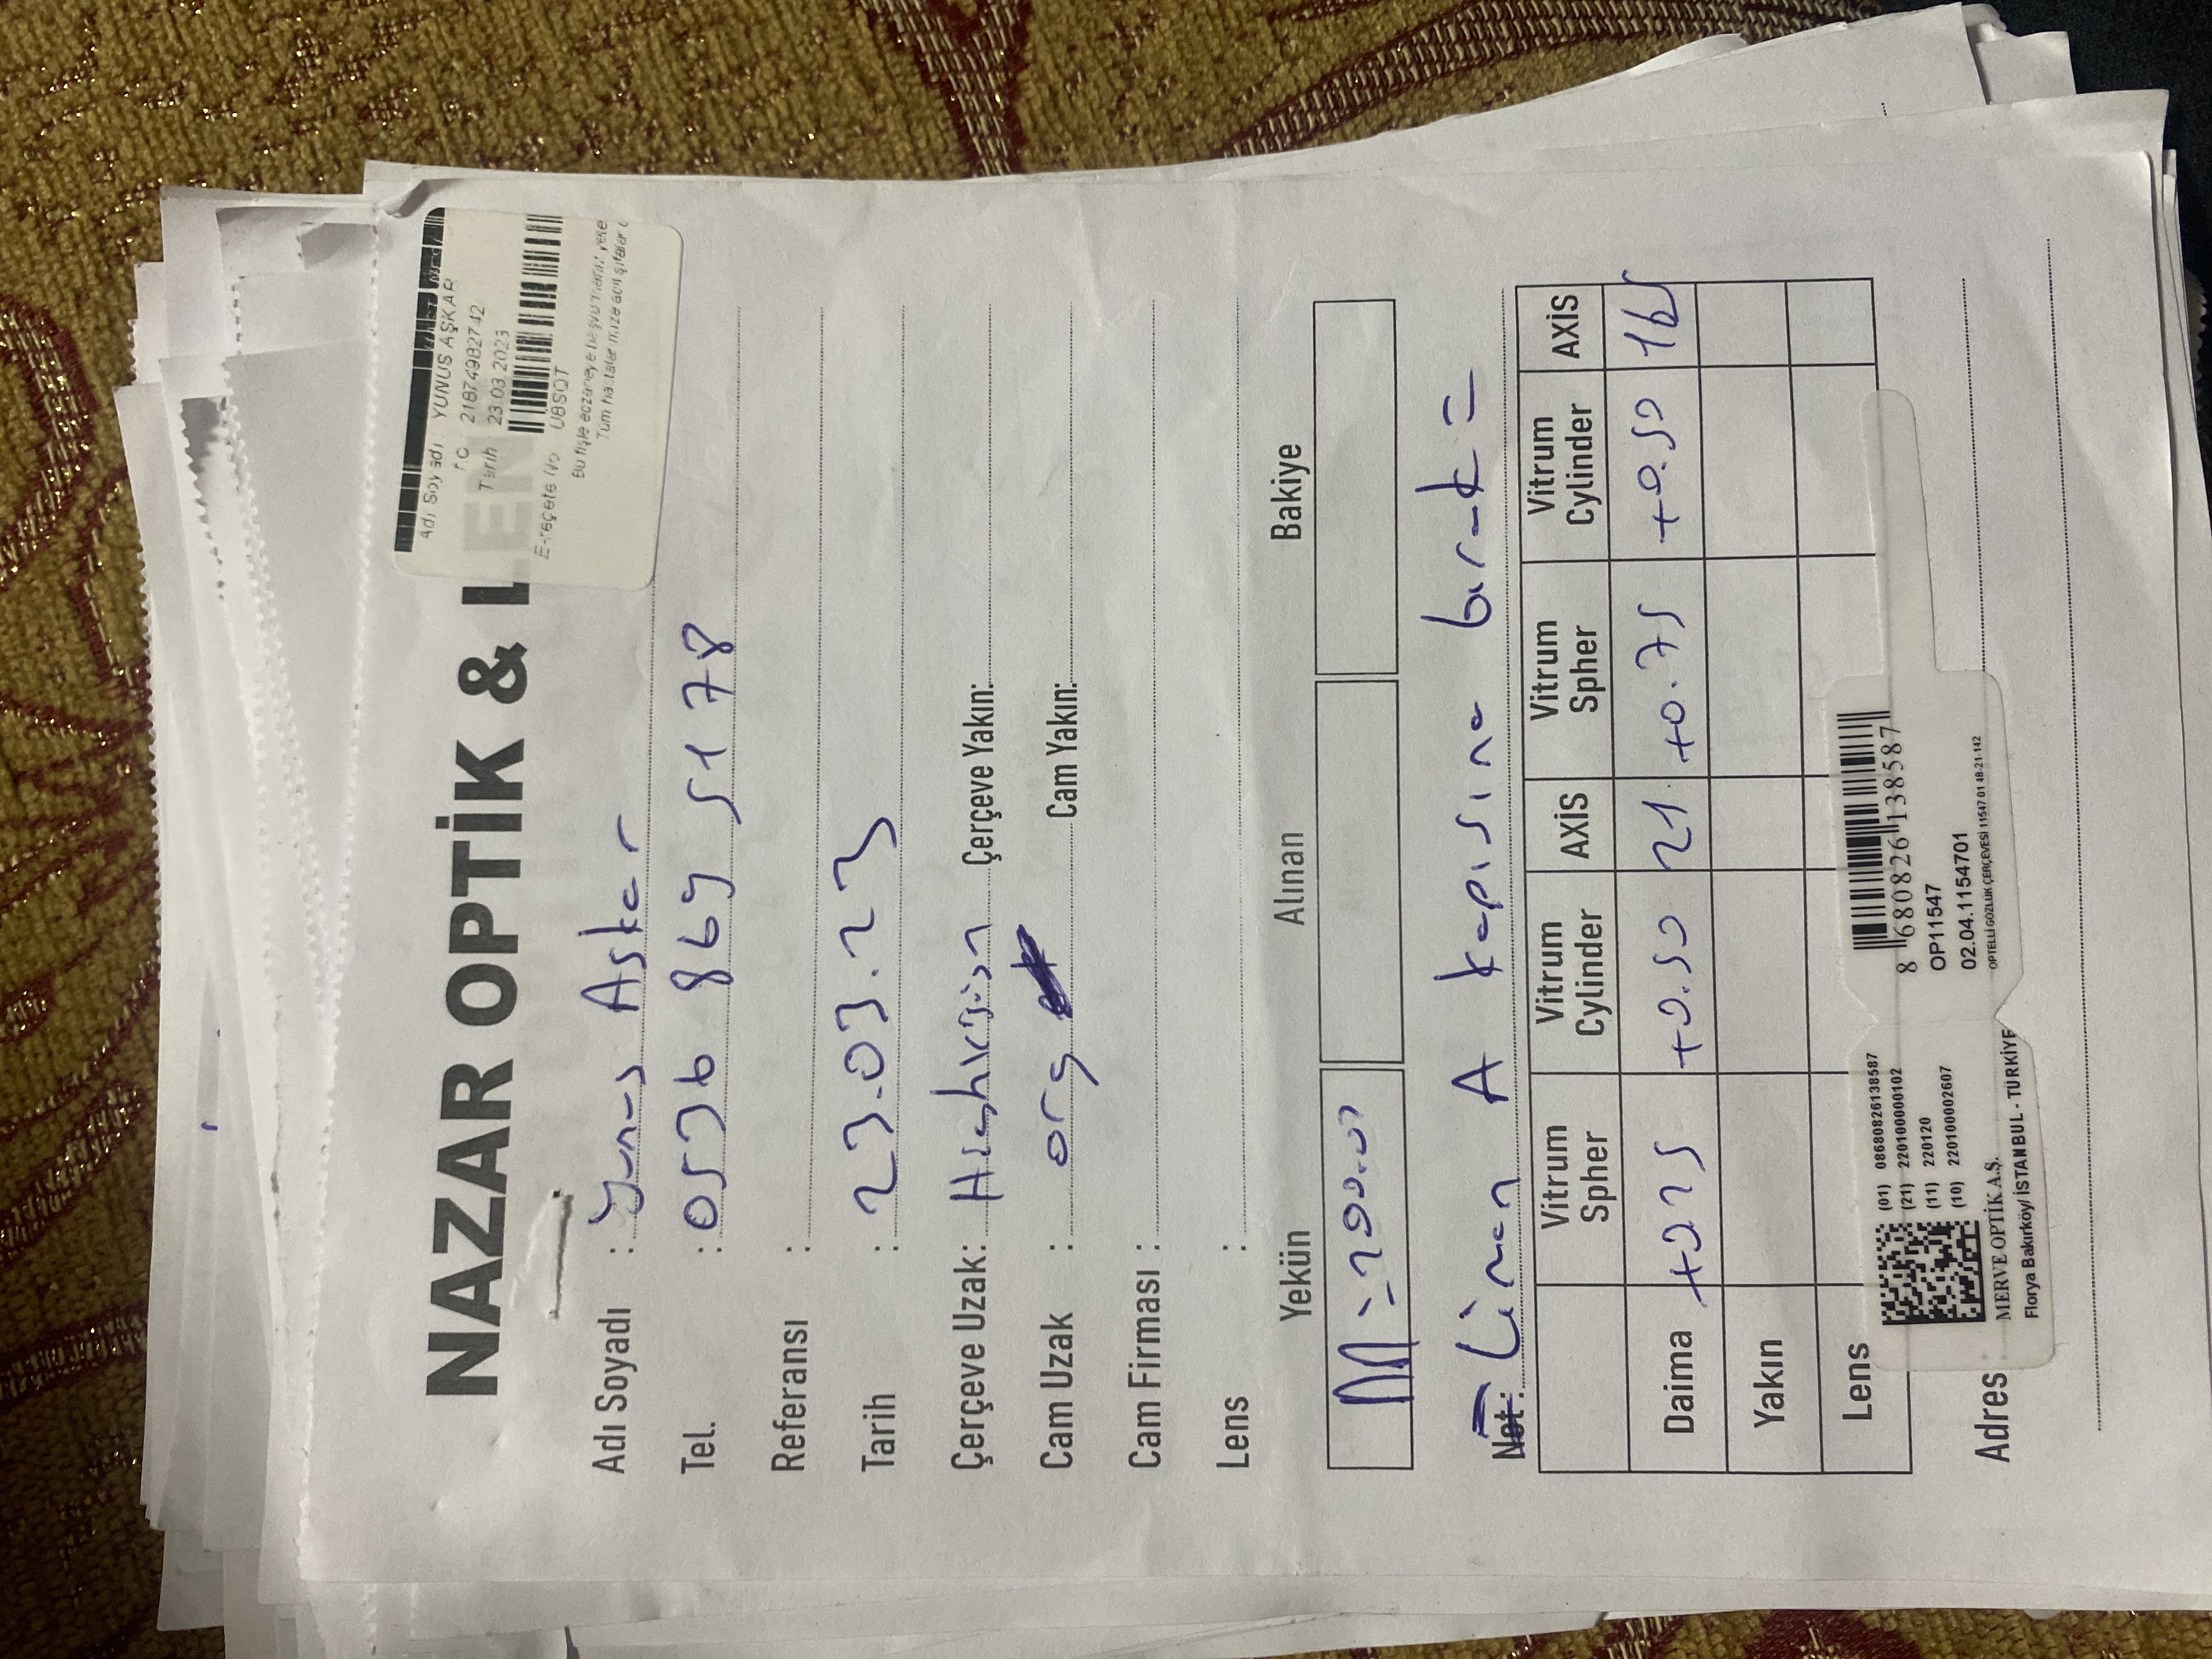 NAZAR OPTİK & LEN
Adı Soyadı : YUNUS AŞKAR
T.C 21874982742
Tarih 23.03.2023
E-reçete No UBSQT
Bu fişle eczaneye başvurmanız yete
Tüm hastalarımıza acil şifalar d
Adı Soyadı : Yunus Aşkar
Tel. : 0536 869 5178
Referansı :
Tarih : 23.03.23
Çerçeve Uzak: Highvision Çerçeve Yakın:
Cam Uzak : org Cam Yakın:
Cam Firması :
Lens :
Yekün Alınan Bakiye
M = 200.00
Not: = Liman A kapısına bırak =
Vitrum Spher Vitrum Cylinder AXİS Vitrum Spher Vitrum Cylinder AXİS
Daima +0.25 +0.50 21 +0.75 +0.50 165
Yakın
Lens
(01) 08680826138587
(21) 220100000102
(11) 220120
(10) 220100002607
MERVE OPTİK A.Ş.
Florya Bakırköy/ İSTANBUL - TÜRKİYE
8 680826 138587
OP11547
02.04.1154701
OPTELLİ GÖZLÜK ÇERÇEVESİ 11547 01 48-21-142
Adres